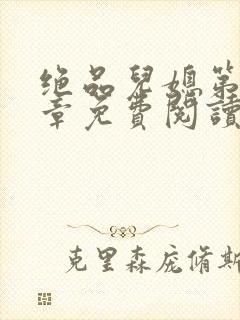 绝品兒媳第
章免费閱讀
克里森庞脩斯